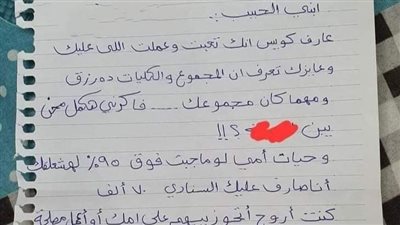 ابني الحبيب..
عارف كويس انك تعبت وعملت اللى عليك
وعايزك تعرف ان المجموع والكليات ده رزق
ومهما كان مجموعك .... فاكرني هكمل محن
بين ؟!!
وحيات أمي لو ماجبت فوق ٩٥٪ لهشعلقك
أنا صارف عليك السنادي ٧٠ ألف
كنت أروح أتجوز بيهم على امك أو أعمل مصلحة